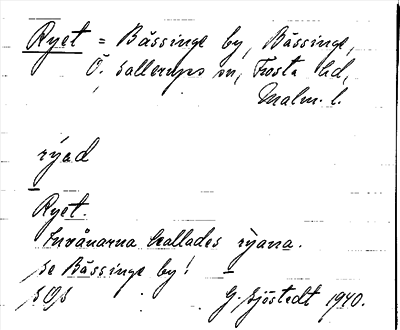 Ryet = Bässinge by, Bässinge,
Ö. Sallerups sn, Frosta hd,
Malm. l.
rýad
Ryet.
Invånarna kallades rỳana.
se Bässinge by!
G. Sjöstedt 1940.